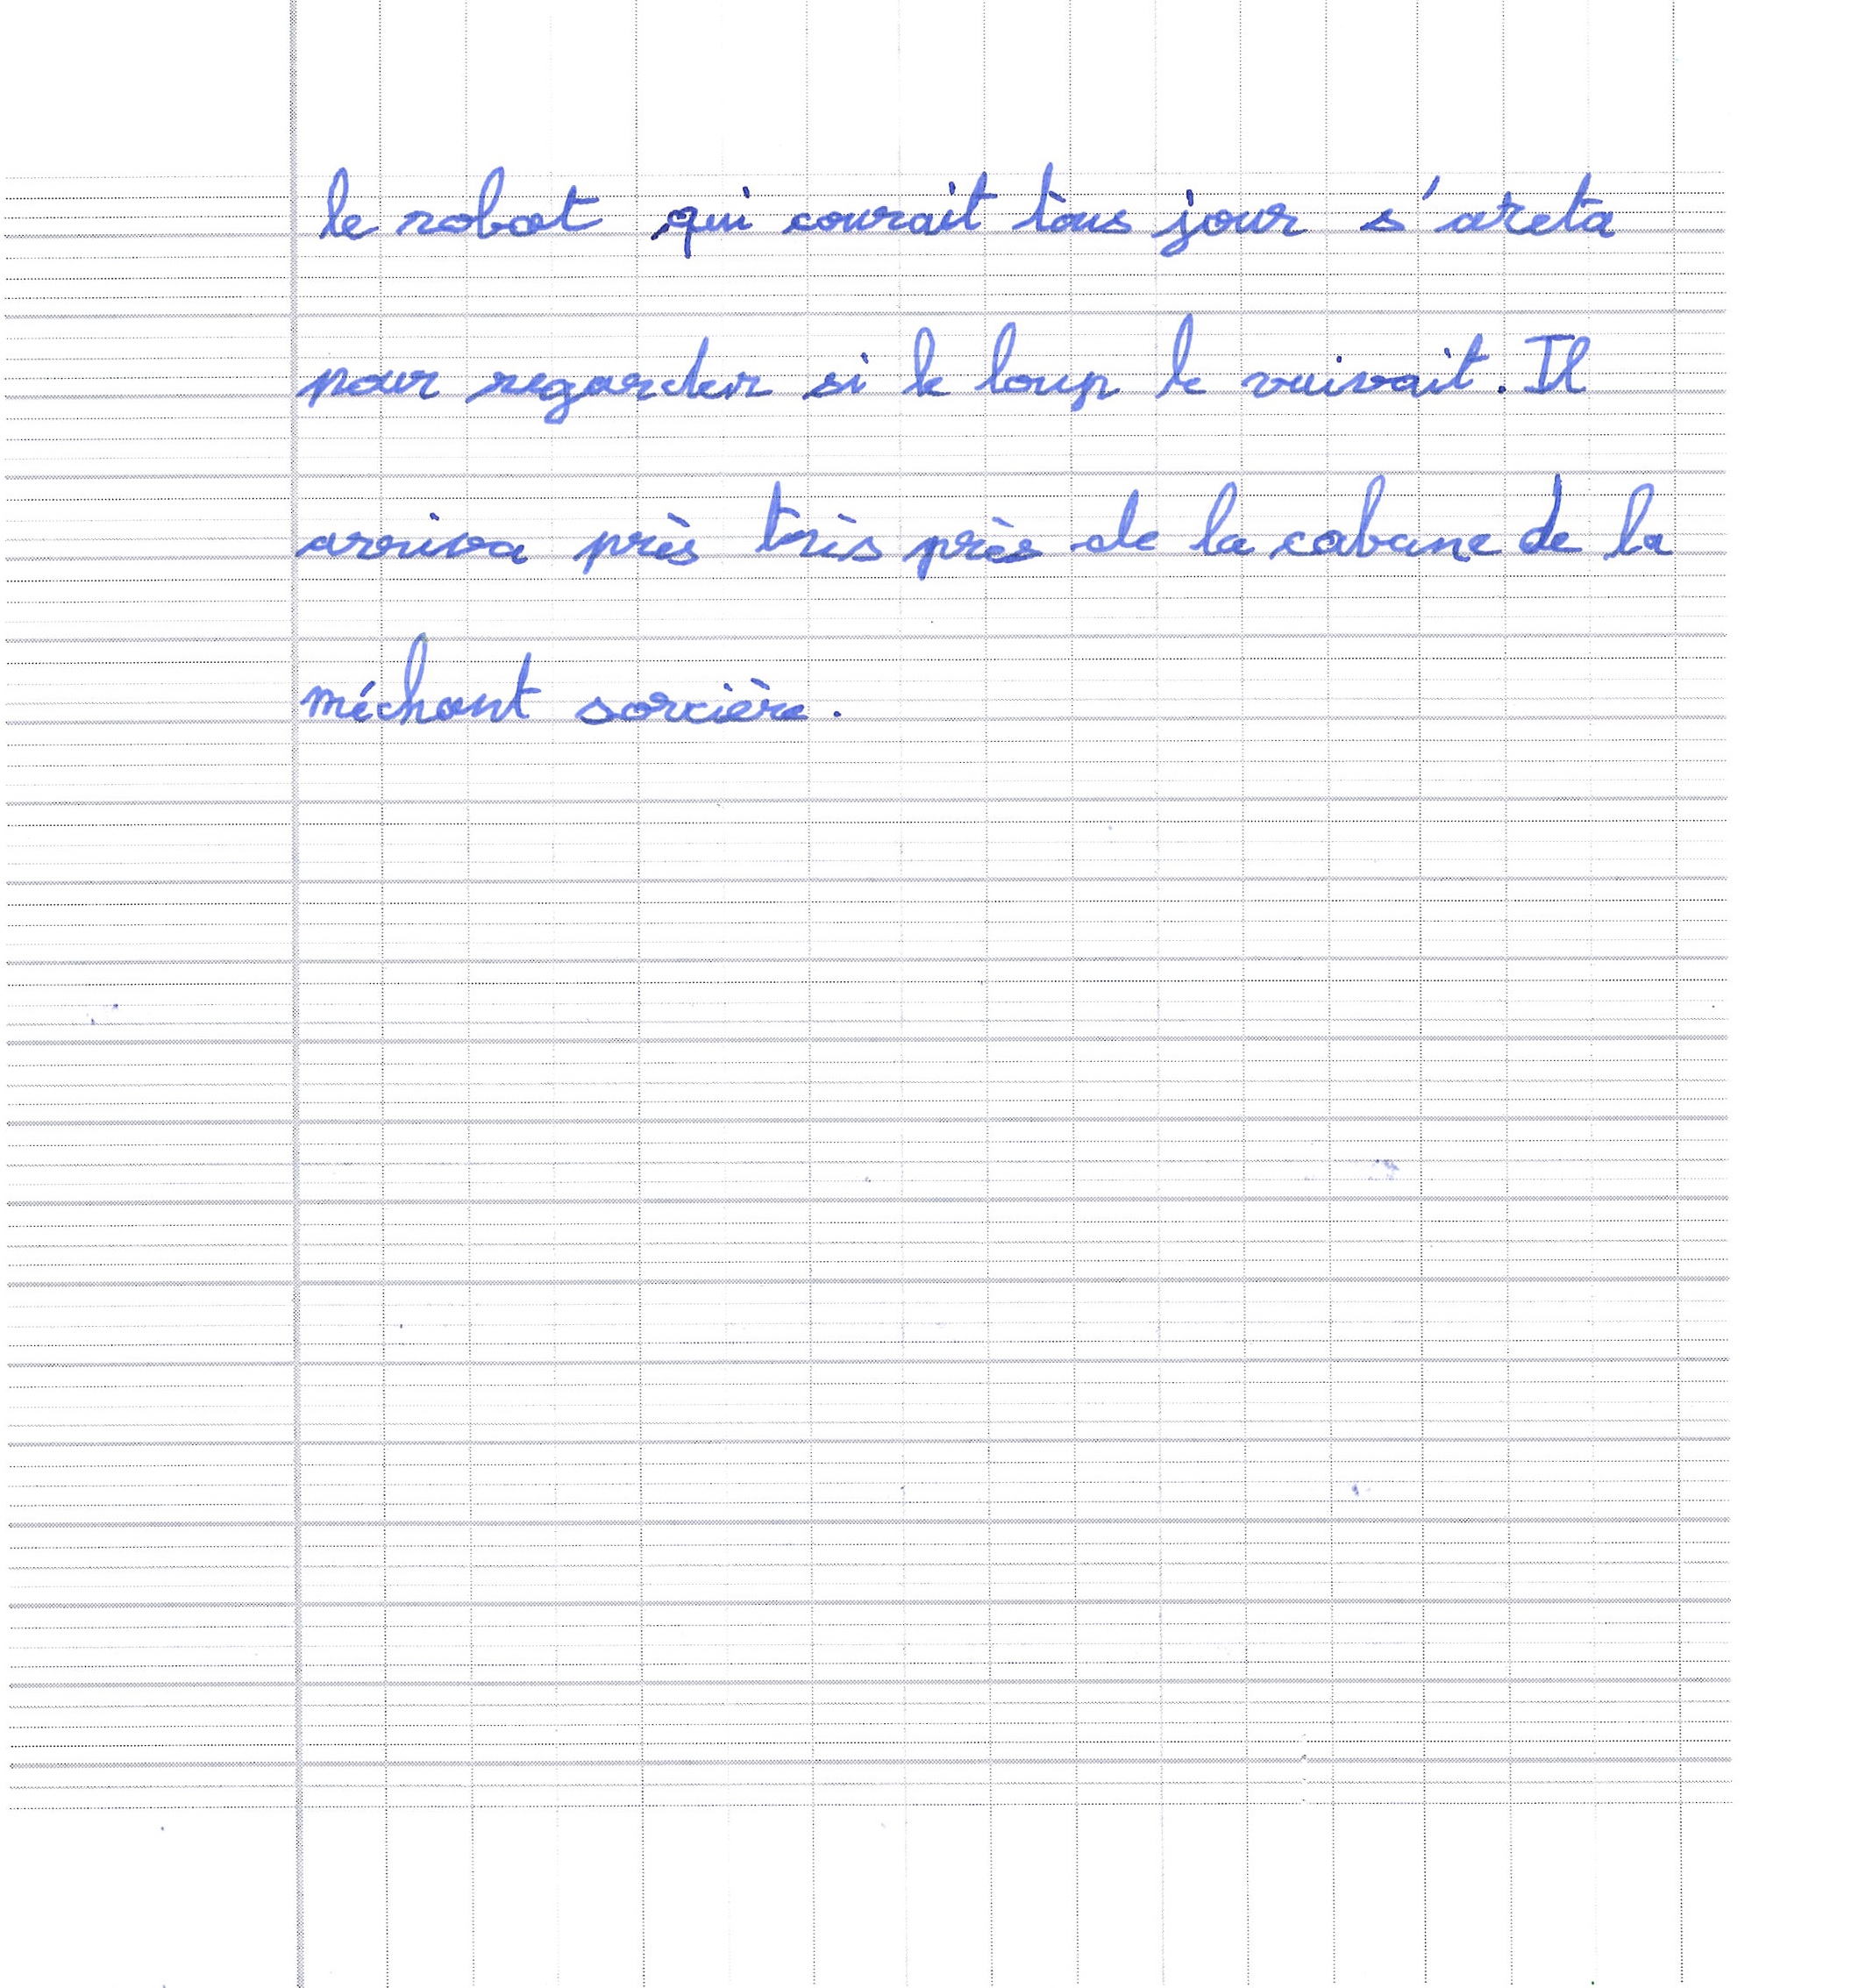 le robot qui courait tous jour s'areta
pour regarder si le loup le vuivait. Il
arriva près très près de la cabane de la
méchant sorcière.